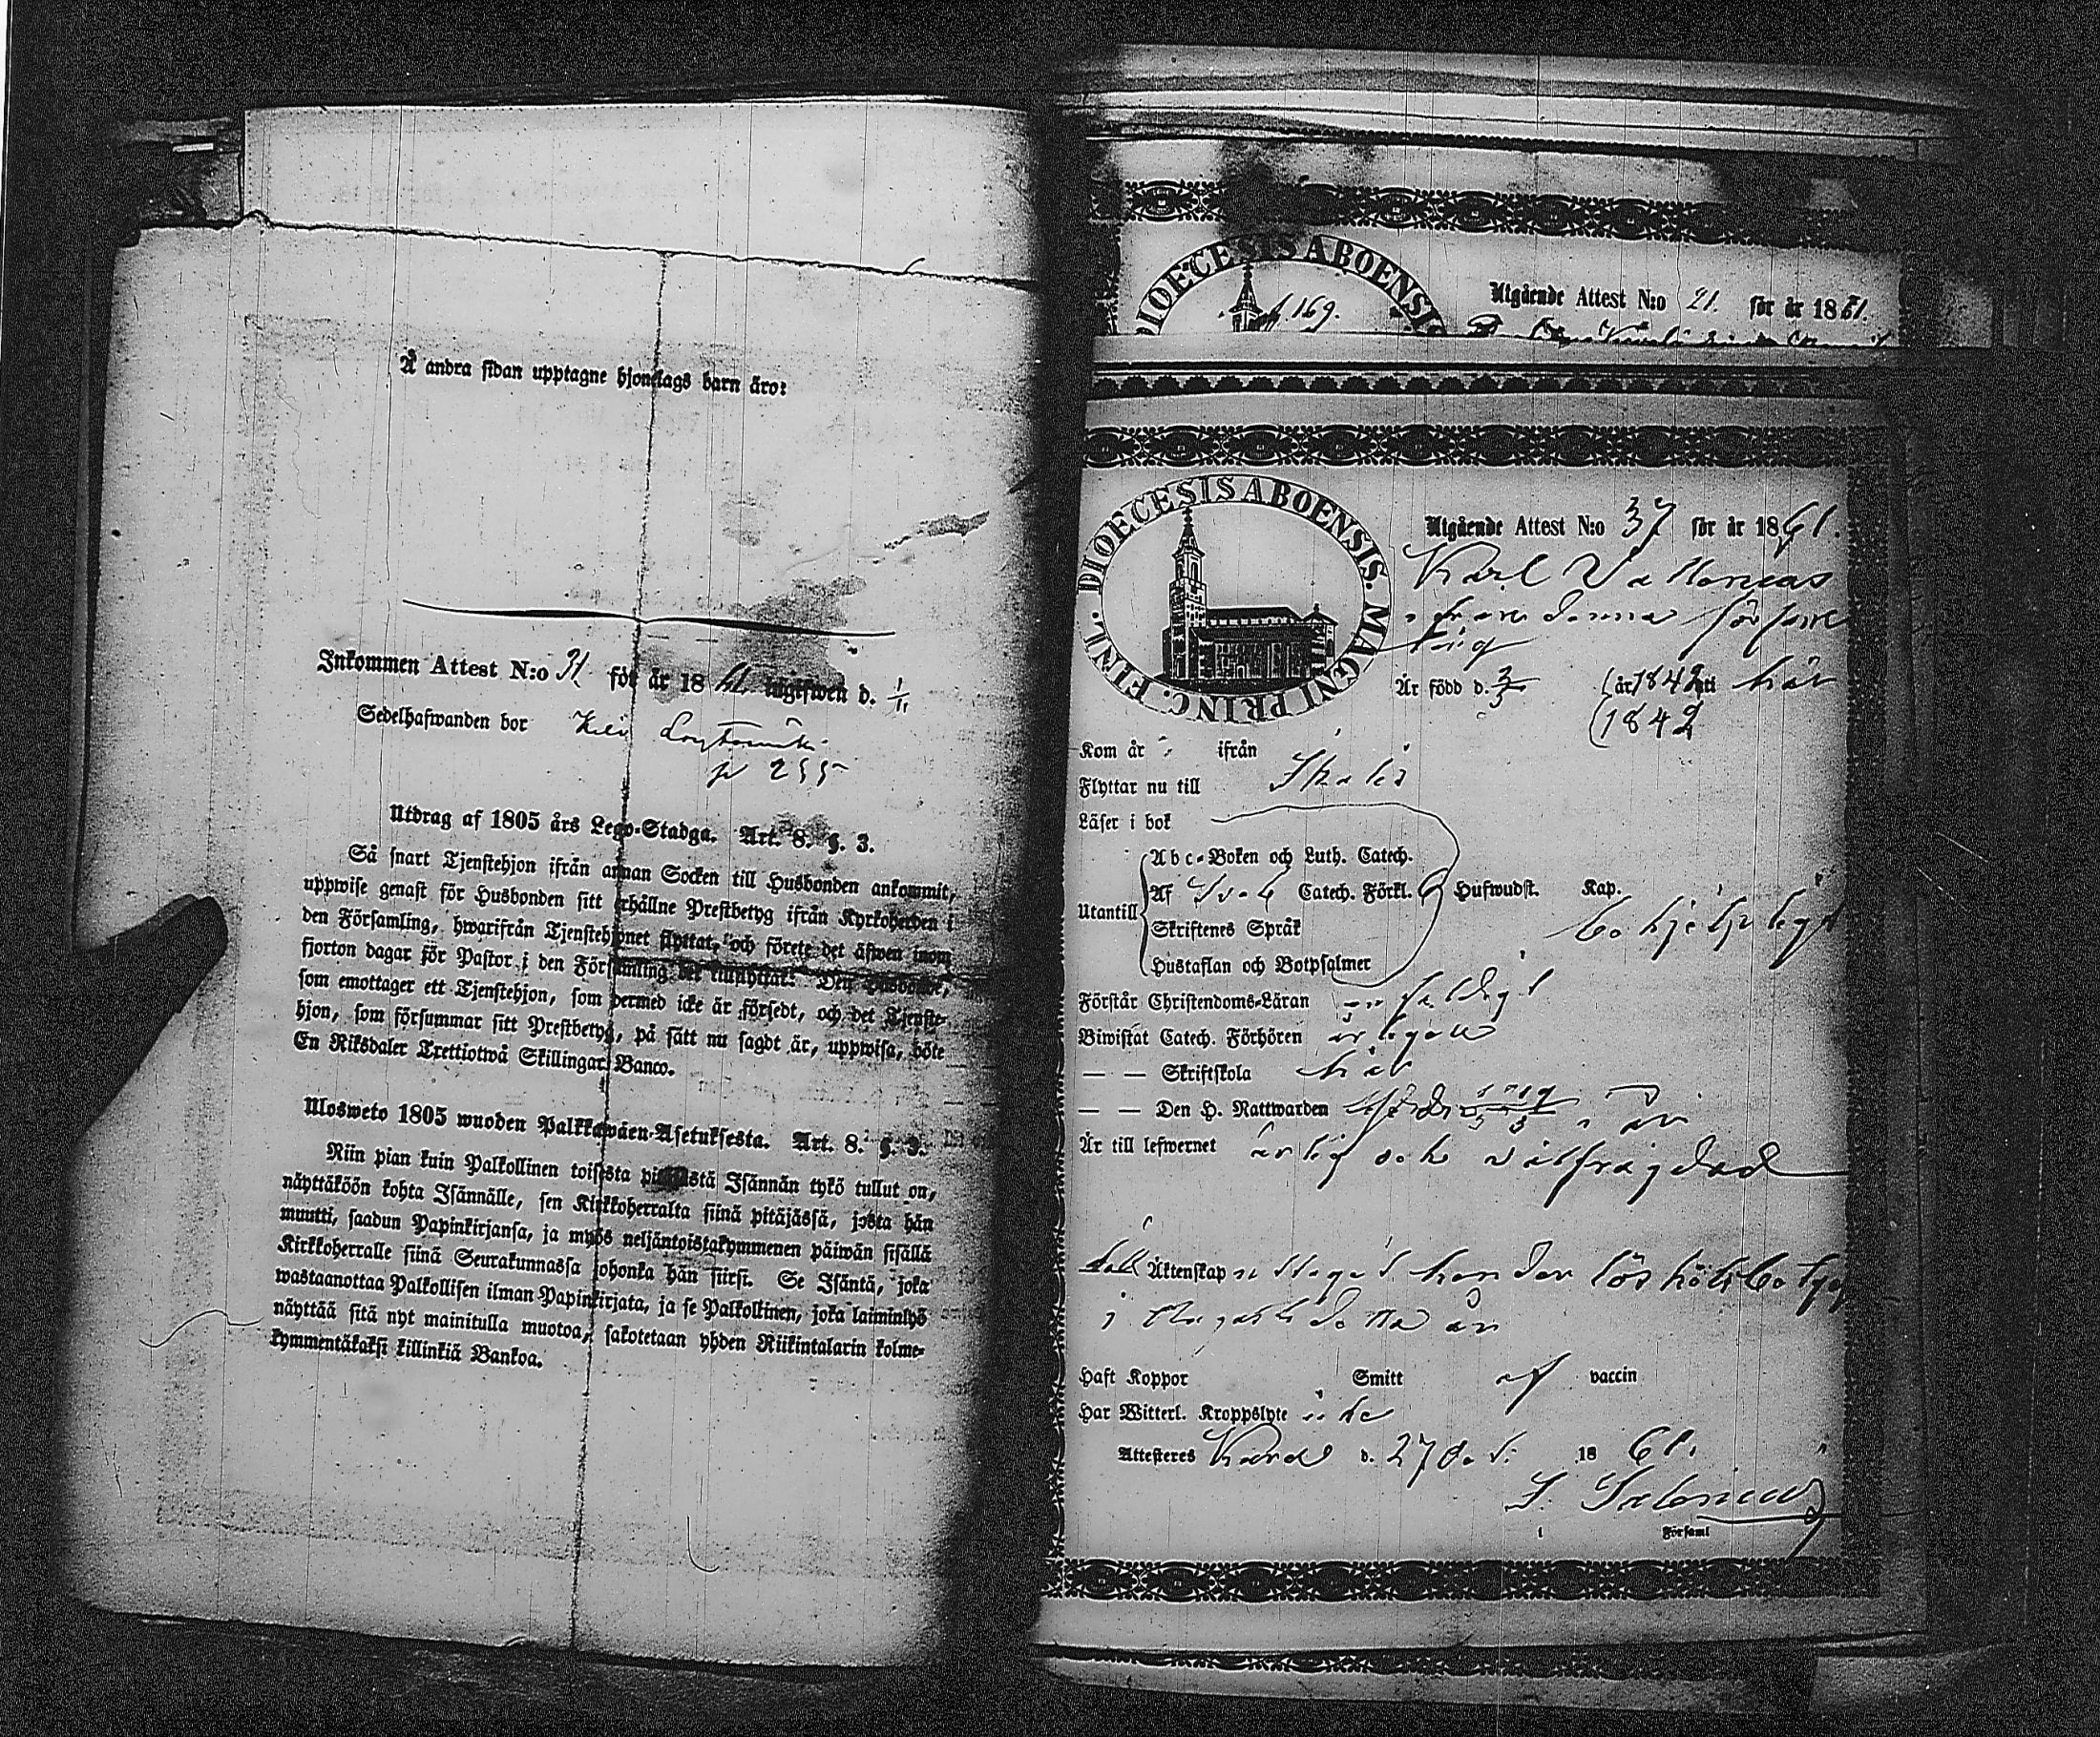 Å andra sidan upptagne hjonelags barn äro:
Inkommen Attest N:o 31 för år 1861 ingifwen d. 1/11
Sedelhafwanden bor
p 255
Utdrag af 1805 års Lego-Stadga. Art. 8. §. 3.
Så snart Tjenstehjon ifrån annan Socken till Husbonden ankommit,
uppwise genast för Husbonden sitt erhållne Prestbetyg ifrån Kyrkoherden i
den Församling, hwarifrån Tjenstehjonet flyttat, och förete det äfwen inom
fjorton dagar för Pastor i den Församling det tillflyttat. Den Husbonde,
som emottager ett Tjenstehjon, som dermed icke är försedt, och det Tjenste-
hjon, som försummar sitt Prestbetyg, på sätt nu sagdt är, uppwisa, böte
En Riksdaler Trettiotwå Skillingar Banco.
Ulosweto 1805 wuoden Palkkawäen-Asetuksesta. Art. 8. §. 3.
Niin pian kuin Palkollinen toisesta pitäjästä Isännän tykö tullut on,
näyttäköön kohta Isännälle, sen Kirkkoherralta siinä pitäjässä, josta hän
muutti, saadun Papinkirjansa, ja myös neljäntoistakymmenen päiwän sisällä
Kirkkoherralle siinä Seurakunnassa johonka hän siirsi. Se Isäntä, joka
wastaanottaa Palkollisen ilman Papinkirjata, ja se Palkollinen, joka laiminlyö
näyttää sitä nyt mainitulla muotoa, sakotetaan yhden Riikintalarin kolme-
kymmentäkaksi killinkiä Bankoa.
DIOECESIS ABOENSIS
169.
Utgående Attest N:o 21. för år 1861.
DIOECESIS ABOENSIS. MAGNI PRINC. FINL.
Utgående Attest N:o 37 för år 1861.
Karl
denna församl
Är född d. 3/3 (år 1842 uti här
(1842
Kom år ifrån
Flyttar nu till
Läser i bok
Abc-Boken och Luth. Catech.
Utantill Af Catech. Förkl. 6 Hufwudst. Kap.
behjelpligt
Skriftenes Språk
Hustaflan och Botpsalmer
Förstår Christendoms-Läran enfaldigt
Biwistat Catech. Förhören årligen
— — Skriftskola här
— — Den H. Nattwarden
Är till lefwernet ärlig och välfrägdad
till Äktenskap
i
Haft Koppor Smitt af vaccin
Har Witterl. Kroppslyte icke
Attesteres d. 27 Oct. 1861.
Församl